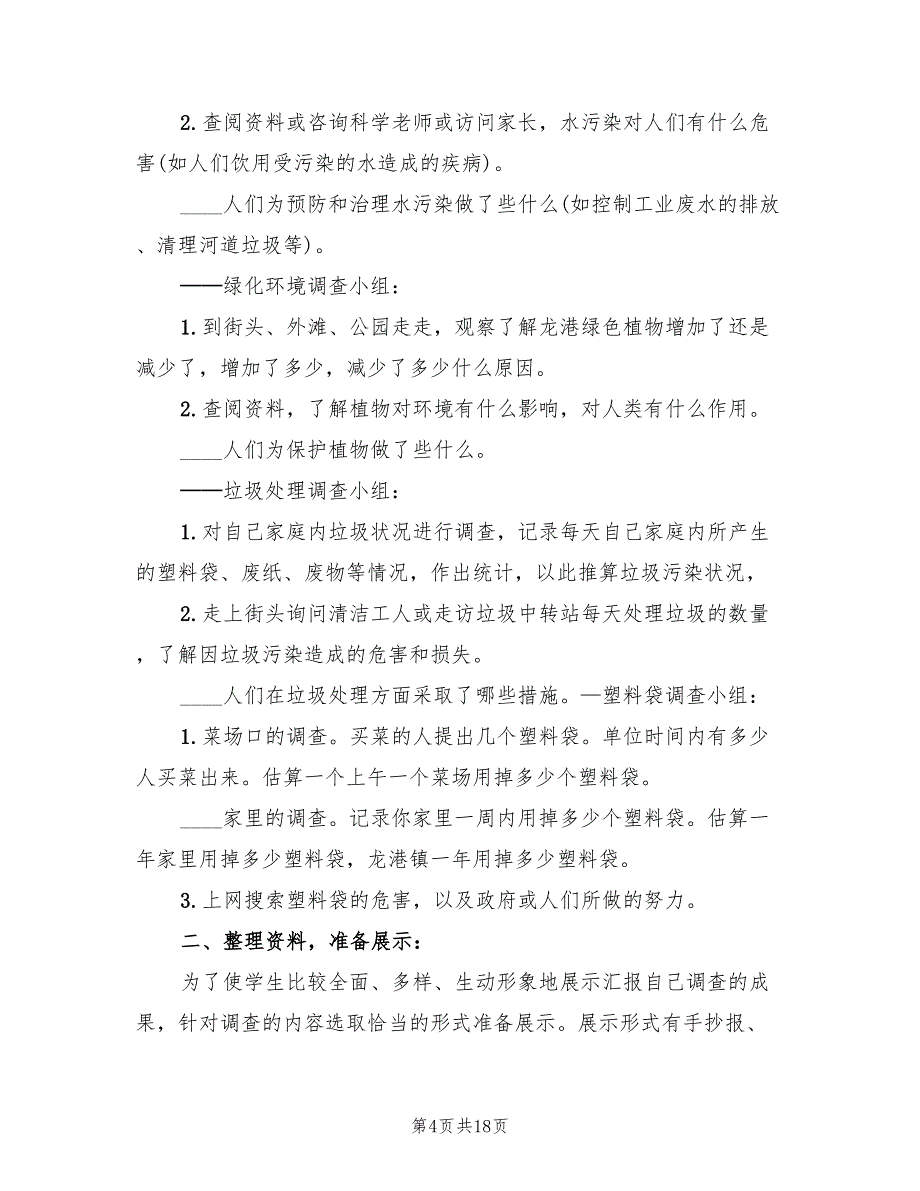 2. 查阅资料或咨询科学老师或访问家长，水污染对人们有什么危
害(如人们饮用受污染的水造成的疾病)。
____人们为预防和治理水污染做了些什么(如控制工业废水的排放
、清理河道垃圾等)。
——绿化环境调查小组：
1. 到街头、外滩、公园走走，观察了解龙港绿色植物增加了还是
减少了，增加了多少，减少了多少什么原因。
2. 查阅资料，了解植物对环境有什么影响，对人类有什么作用。
____人们为保护植物做了些什么。
——垃圾处理调查小组：
1. 对自己家庭内垃圾状况进行调查，记录每天自己家庭内所产生
的塑料袋、废纸、废物等情况，作出统计，以此推算垃圾污染状况，
2. 走上街头询问清洁工人或走访垃圾中转站每天处理垃圾的数量
，了解因垃圾污染造成的危害和损失。
____人们在垃圾处理方面采取了哪些措施。—塑料袋调查小组：
1. 菜场口的调查。买菜的人提出几个塑料袋。单位时间内有多少
人买菜出来。估算一个上午一个菜场用掉多少个塑料袋。
____家里的调查。记录你家里一周内用掉多少个塑料袋。估算一
年家里用掉多少塑料袋，龙港镇一年用掉多少塑料袋。
3. 上网搜索塑料袋的危害，以及政府或人们所做的努力。
二、整理资料，准备展示：
为了使学生比较全面、多样、生动形象地展示汇报自己调查的成
果，针对调查的内容选取恰当的形式准备展示。展示形式有手抄报、
第4页共18页